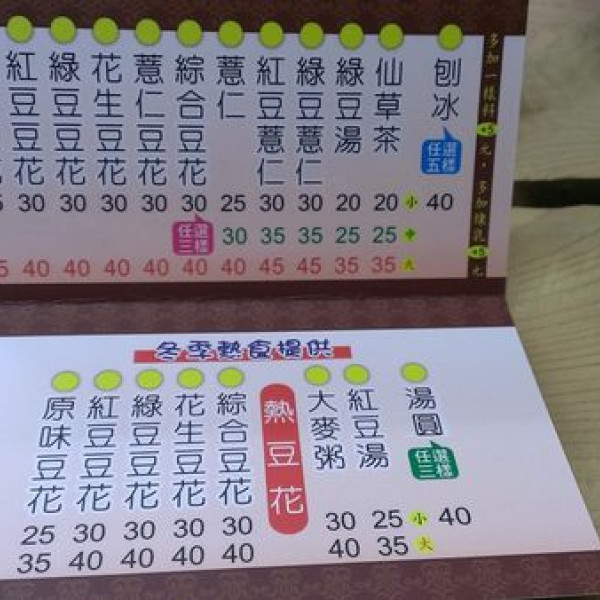 多加一樣料+5元，多加煉乳+5元
刨冰
任選五樣
仙草茶
綠豆湯
綠豆薏仁
紅豆薏仁
薏仁
綜合豆花
薏仁豆花
花生豆花
綠豆豆花
紅豆豆花
30 30 30 30 30 25 30 30 20 20 小 40
任選三樣
30 35 35 25 25 中
40 40 40 40 40 40 45 45 35 35 大
冬季熱食提供
湯圓
任選三樣
紅豆湯
大麥粥
熱豆花
綜合豆花
花生豆花
綠豆豆花
紅豆豆花
原味豆花
25 30 30 30 30 30 25 小 40
35 40 40 40 40 40 35 大